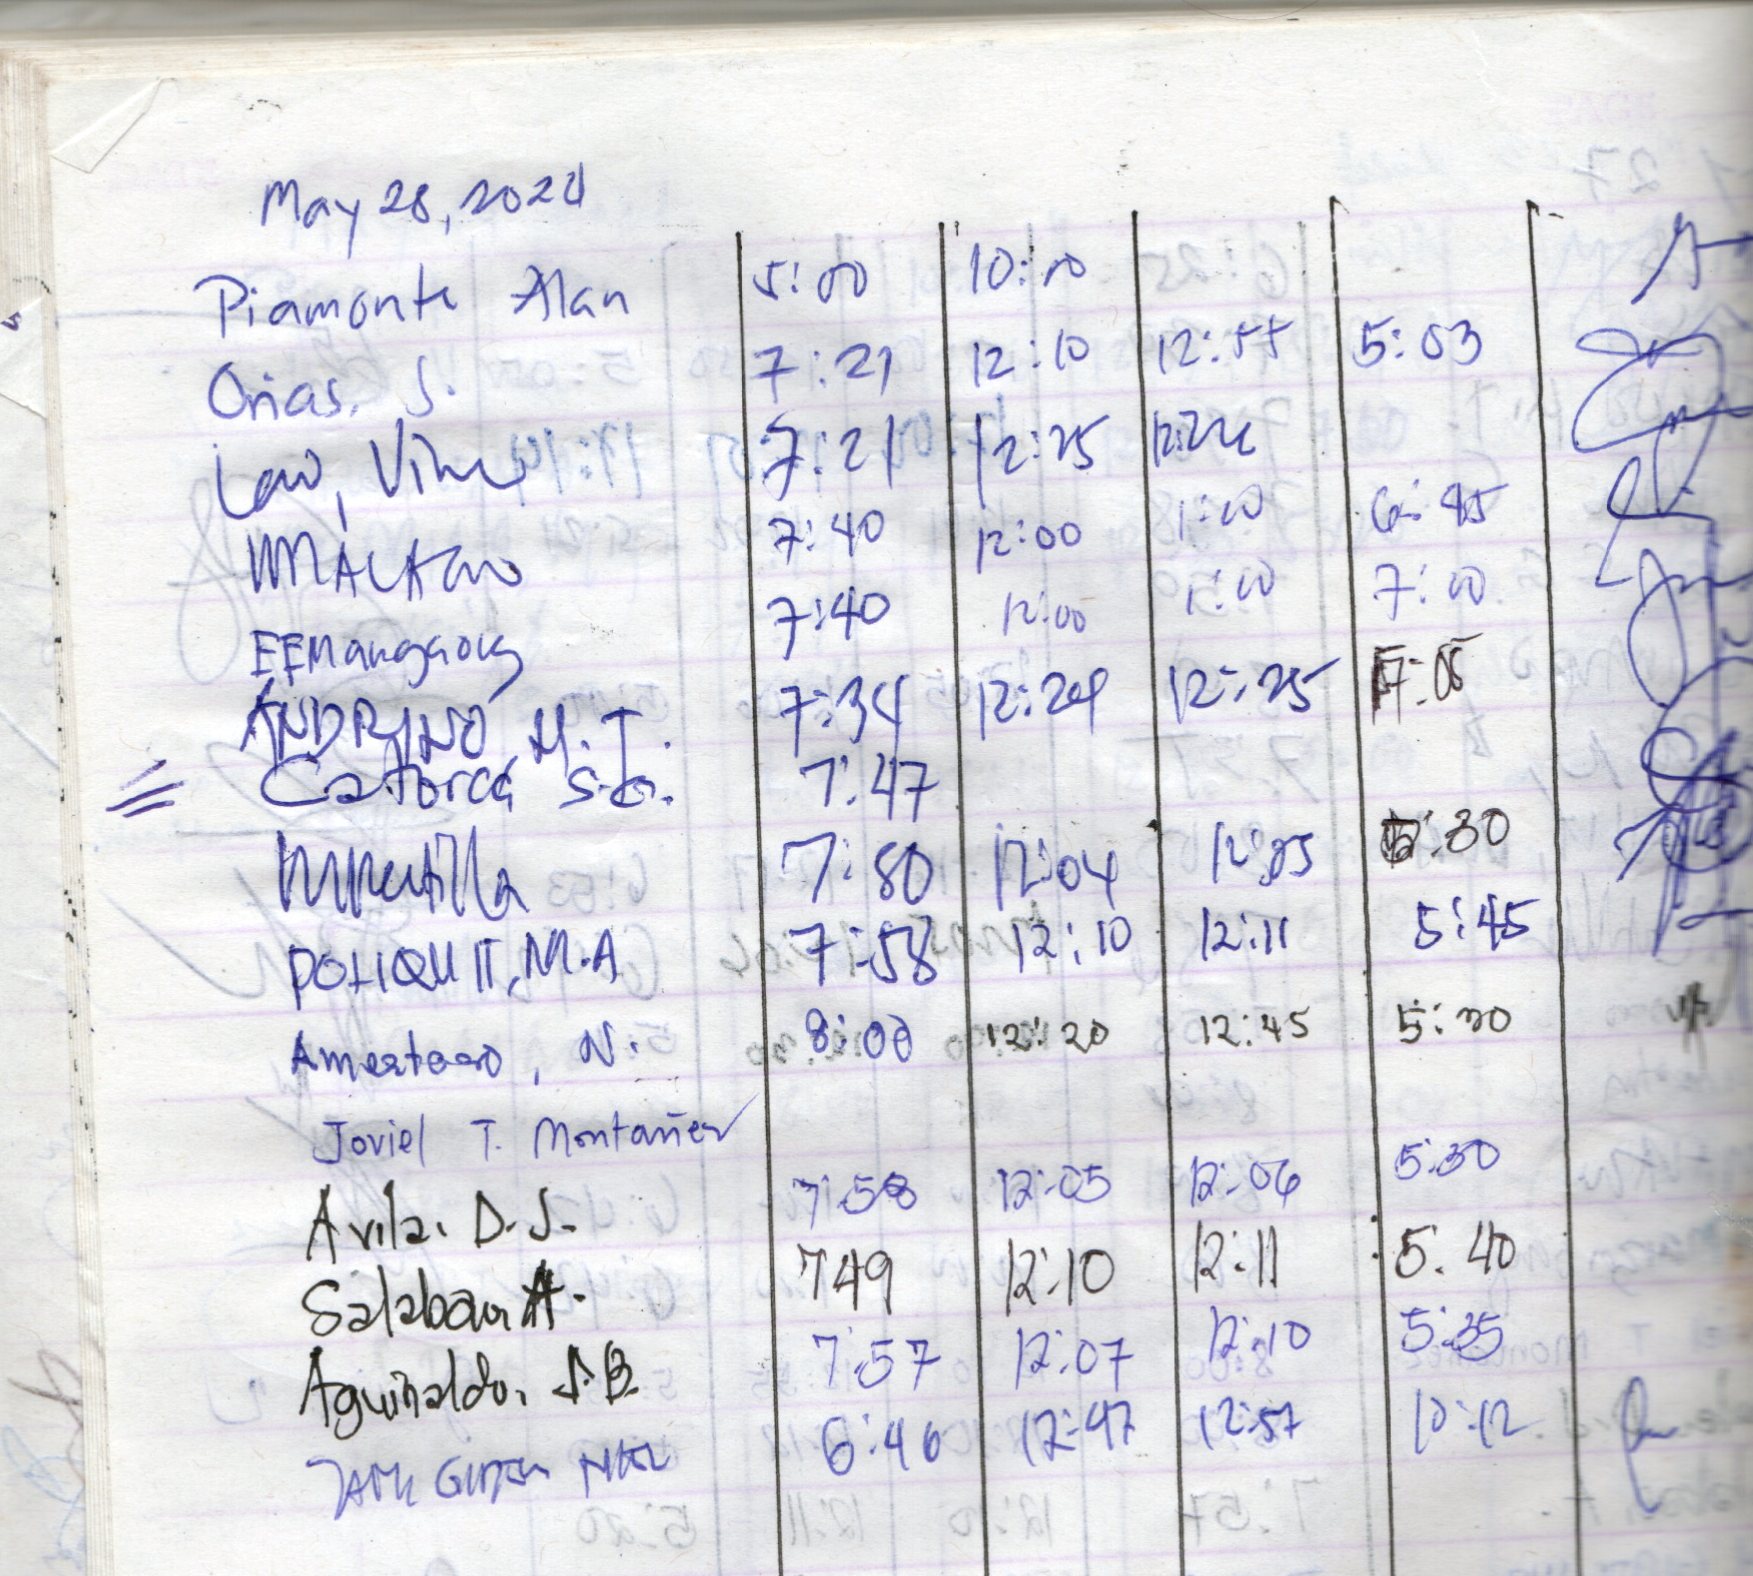 May 28, 2024
Piamonte Alan 5:00 10:00
Orias. S. 7:21 12:10 12:55 5:03
7:21 12:25 12:26
7:40 12:00 1:00 6:45
EEMangaong 7:40 12:00 1:00 7:00
ANDRINO, M.T. 7:34 12:24 12:25 7:05
Catorce S.G. 7:47
7:80 12:04 12:05 5:30
POLIQUIT, M.A 7:58 12:10 12:11 5:45
Amestoso, N. 8:00 12:20 12:45 5:30
Joviel T. Montañez
Avila. D.J. 7:58 12:05 12:06 5:30
Salaban A. 749 12:10 12:11 5.40
Aguinaldo. J.B. 7:57 12:07 12:10 5:35
6:46 12:47 12:57 10:12